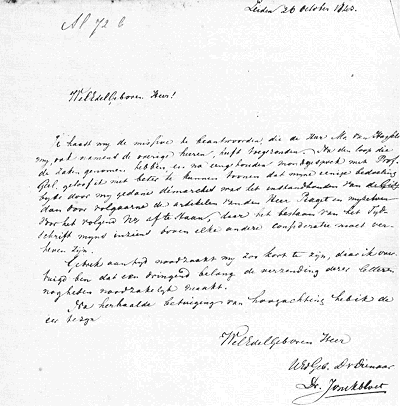 Al 72 b
Leiden 26 October 184
WelEdelGeboren Heer!
Ik haast mij de missive te beantwoorden, die de Heer M. van
mij, ook namens de overige heeren, heeft toegezonden. Na den loop die
de zaken genomen hebben, en na eene gehouden mondgesprek met Prof.
Geel, geloof ik niet beter te kunnen toonen dat mijne eenige bedoeling
by door my gedane démarches was het instandhouden van de Gids
dan door volgaarne de artikelen van den Heer Piaget en
voor het volgend No af te staan, daar het bestaan van het Tijd-
schrift myns inziens boven elke andere consideratie moet ver-
heven zijn.
Gebrek aan tijd noodzaakt mij zoo kort te zijn, daar ik over-
tuigd ben dat een dringend belang de verzending dezer letteren
noodzakelyk maakt.
Na herhaalde betuiging van hoogachting heb ik de
eer te zijn
WelEdelGeboren Heer
UEdGeb. Dv Dienaar
Dr. Jonckbloet